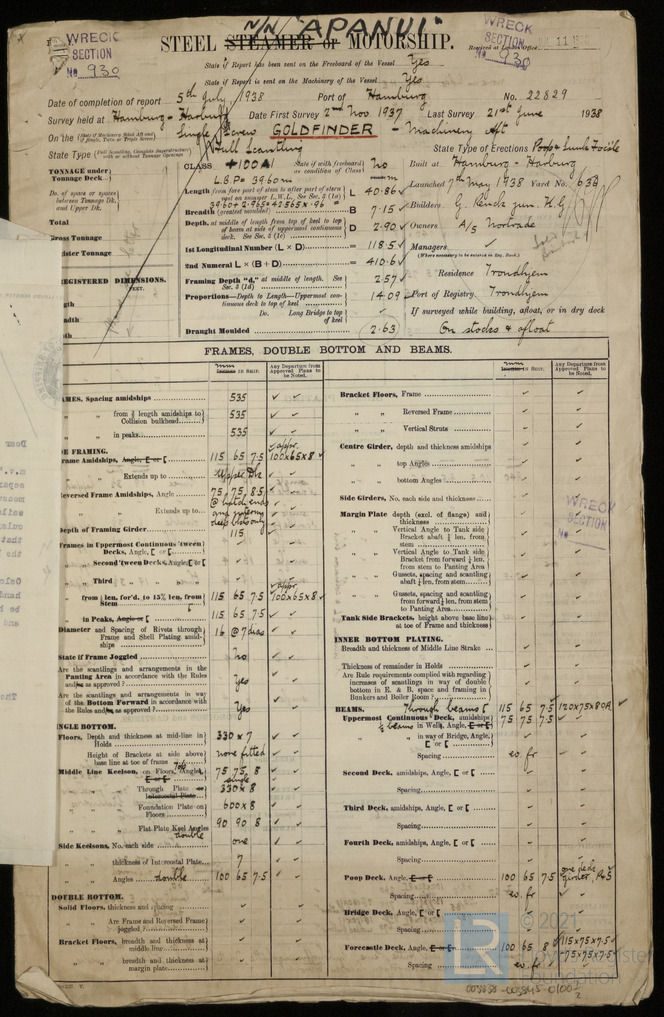 N/N "APANUI"
WRECK SECTION
No 930
WRECK SECTION
No 930
STEEL STEAMER or MOTORSHIP.
State if Report has been sent on the Freeboard of the Vessel Yes
State if Report is sent on the Machinery of the Vessel Yes
Date of completion of report 5th July 1938 Port of Hamburg No. 22829
Survey held at Hamburg - Harburg Date First Survey 2nd Nov 1937 Last Survey 21st June 1938
On the Single Screw GOLDFINDER - Machinery Aft
State Type Full Scantling State Type of Erections Poop & Sunk Focsle
TONNAGE under Tonnage Deck
CLASS +100A1 State if with freeboard as condition of Class No
Built at Hamburg - Harburg
L.B.P = 39.60m
Launched 7th May 1938 Yard No. 636
Length L 40.86
Breadth (greatest moulded) B 7.15
Builders
Depth, at middle of length from top of keel to top of beam at side of uppermost continuous deck. See Sec. 3 (1c) D 2.90
Owners A/S Nortrade
1st Longitudinal Number (L × D) = 118.5
Managers
2nd Numeral L × (B + D) = 410.6
Framing Depth "d," at middle of length. 2.57
Residence Trondhjem
Proportions—Depth to Length—Uppermost continuous deck to top of keel 14.09
Port of Registry Trondhjem
Do. Long Bridge to top of keel
If surveyed while building, afloat, or in dry dock
Draught Moulded 2.63
On stocks & afloat
REGISTERED DIMENSIONS.
FRAMES, DOUBLE BOTTOM AND BEAMS.
Any Departure from Approved Plans to be Noted.
Any Departure from Approved Plans to be Noted.
Spacing amidships 535
from ⅗ length amidships to Collision bulkhead 535
in peaks 535
Frame Amidships, Angle, [ or [ 115 65 7.5 appr. 100x65x8
Extends up to Upper Dk
Reversed Frame Amidships, Angle 75 75 8.5
Extends up to
Depth of Framing Girder 115
Frames in Uppermost Continuous 'tween Decks, Angle, [ or [
Second 'tween Decks, Angle, [ or [
Third
from ⅕ len. for'd. to 15% len. from Stem 115 65 7.5 appr. 100x65x8
in Peaks, Angle or [ 115 65 7.5
Diameter and Spacing of Rivets through Frame and Shell Plating amidships 16 @ 7 dias
State if Frame Joggled No
Are the scantlings and arrangements in the Panting Area in accordance with the Rules and/or as approved? Yes
Are the scantlings and arrangements in way of the Bottom Forward in accordance with the Rules and/or as approved? Yes
SINGLE BOTTOM.
Floors, Depth and thickness at mid-line in Holds 330 x 7
Height of Brackets at side above base line at toe of frame none fitted
Middle Line Keelson, on Floors, Angles 75 75 8
Through Plate or Intercostal Plate single 330x8
Foundation Plate on Floors 600x8
Flat Plate Keel Angles double 90 90 8
Side Keelsons, No. each side one
thickness of Intercostal Plate 7
Angles double 100 65 7.5
DOUBLE BOTTOM.
Solid Floors, thickness and spacing
Are Frame and Reversed Frame joggled?
Bracket Floors, breadth and thickness at middle line
breadth and thickness at margin plate
Bracket Floors, Frame
Reversed Frame
Vertical Struts
Centre Girder, depth and thickness amidships
top Angles
bottom Angles
Side Girders, No. each side and thickness
WRECK SECTION
No
Margin Plate depth (excl. of flange) and thickness
Vertical Angle to Tank side Bracket abaft ¼ len. from stem
Vertical Angle to Tank side Bracket from forward ¼ len. from stem to Panting Area
Gussets, spacing and scantling abaft ¼ len. from stem
Gussets, spacing and scantling from forward ¼ len. from stem to Panting Area
Tank Side Brackets, height above base line at toe of Frame and thickness
INNER BOTTOM PLATING.
Breadth and thickness of Middle Line Strake
Thickness of remainder in Holds
Are Rule requirements complied with regarding increases of scantling in way of double bottom in E. & B. space and framing in Bunkers and Boiler Room?
BEAMS. Through beams [ 115 65 7.5 120x75x8A
Uppermost Continuous Deck, amidships ½ beams in Wells, Angle, [ or [ 75 75 7.5
in way of Bridge, Angle, [ or [
Spacing ev. fr
Second Deck, amidships, Angle, [ or [
Spacing
Third Deck, amidships, Angle, [ or [
Spacing
Fourth Deck, amidships, Angle, [ or [
Spacing
Poop Deck, Angle, [ or [ 100 65 7.5
Spacing ev. fr
Bridge Deck, Angle, [ or [
Spacing
Forecastle Deck, Angle, [ or [ 100 65 8 115x75x7.5 75x75x7.5
Spacing ev. fr
LR
© 2021
Lloyd's Register
Foundation